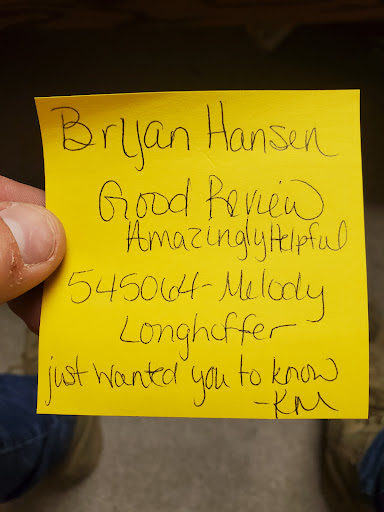 Bryan Hansen
Good Review
Amazingly Helpful
545064 - Melody
Longhoffer
just wanted you to know
- KM